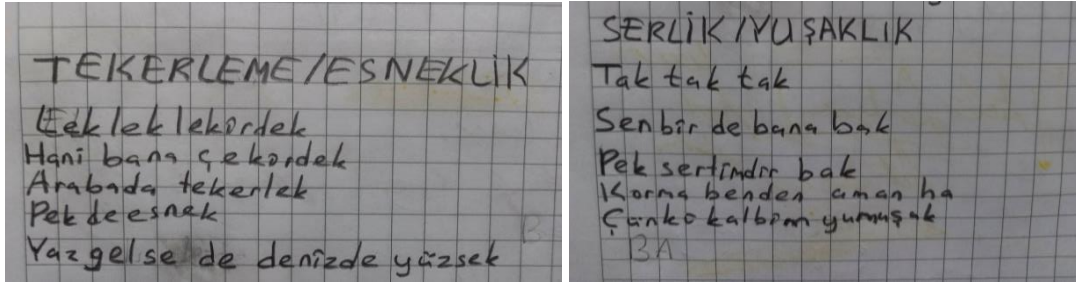 TEKERLEME/ESNEKLİK
Lek lek lekördek
Hani bana çekördek
Arabada tekerlek
Pek de esnek
Yaz gelse de denizde yüzsek
B
SERLİK/YUŞAKLIK
Tak tak tak
Sen bir de bana bak
Pek sertimdir bak
Korma benden aman ha
Çünkö kalbim yumuşak
BA